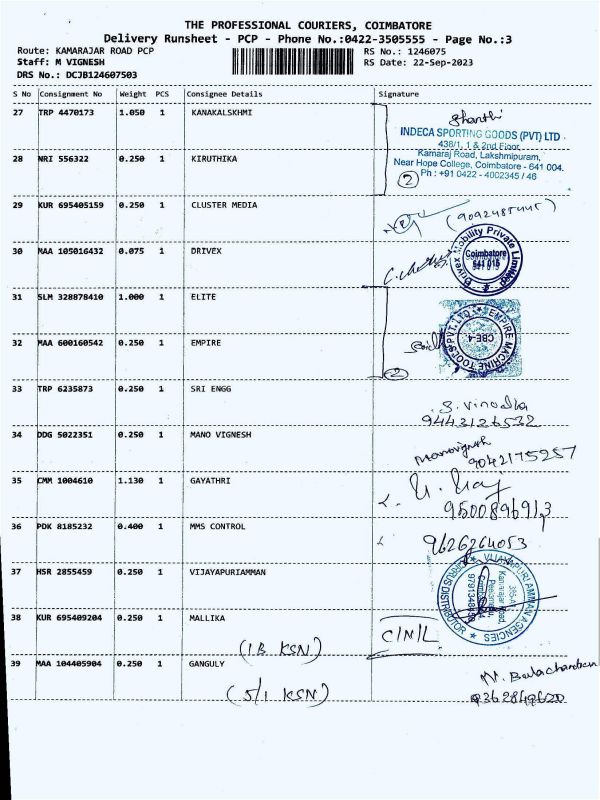 THE PROFESSIONAL COURIERS, COIMBATORE
Delivery Runsheet - PCP - Phone No.:0422-3505555 - Page No.:3
Route: KAMARAJAR ROAD PCP RS No.: 1246075
Staff: M VIGNESH RS Date: 22-Sep-2023
DRS No.: DCJB124607503
S No Consignment No Weight PCS Consignee Details Signature
27 TRP 4470173 1.050 1 KANAKALSKHMI
Shanthi
INDECA SPORTING GOODS (PVT) LTD
438/1, 1 & 2nd Floor,
Kamaraj Road, Lakshmipuram,
Near Hope College, Coimbatore - 641 004.
Ph : +91 0422 - 4002345 / 46
28 NRI 556322 0.250 1 KIRUTHIKA
2
29 KUR 695405159 0.250 1 CLUSTER MEDIA
30 MAA 105016432 0.075 1 DRIVEX
Drivex Mobility Private Limited
Coimbatore
641 015
31 SLM 328878410 1.000 1 ELITE
32 MAA 600160542 0.250 1 EMPIRE
EMPIRE MACHINE TOOLS PVT. LTD.
CBE-4.
2
33 TRP 6235873 0.250 1 SRI ENGG
S. Vinodha
9443126532
34 DDG 5022351 0.250 1 MANO VIGNESH
Manovignesh
9042175257
35 CMM 1004610 1.130 1 GAYATHRI
9500896913
36 PDK 8185232 0.400 1 MMS CONTROL
9626264053
37 HSR 2855459 0.250 1 VIJAYAPURIAMMAN
VIJAYAPURI AMMAN AGENCIES
38 KUR 695409204 0.250 1 MALLIKA
(1B KSN) C/N/L
39 MAA 104405904 0.250 1 GANGULY
(5/1 KSN)
9362849620